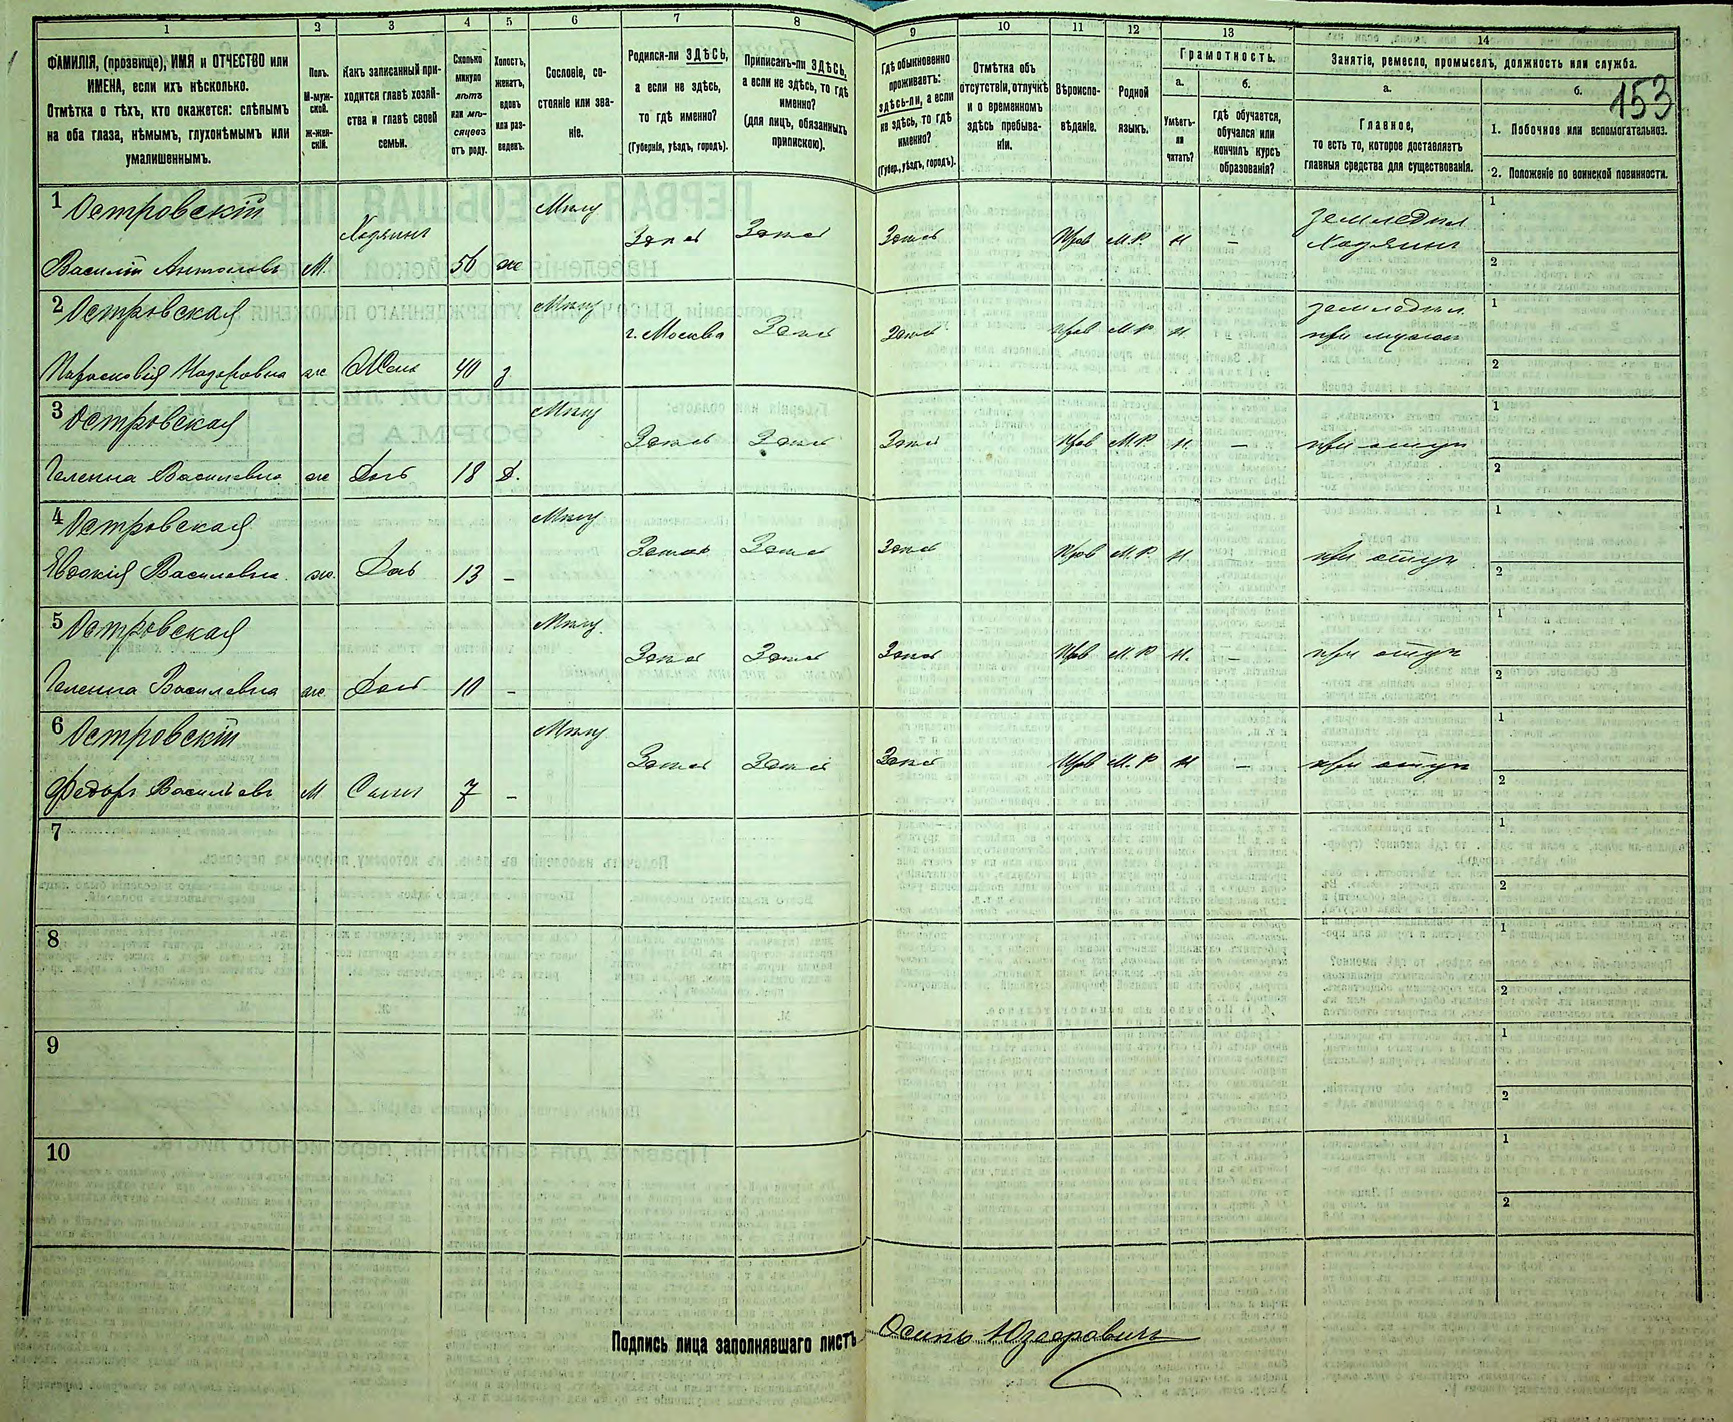 1 2 3 4 5 6 7 8 9 10 11 12 13 14
ФАМИЛІЯ, (прозвище), ИМЯ и ОТЧЕСТВО или
ИМЕНА, если ихъ нѣсколько.
Отмѣтка о тѣхъ, кто окажется: слѣпымъ
на оба глаза, нѣмымъ, глухонѣмымъ или
умалишеннымъ.
Полъ.
М-муж-
ской.
ж-жен-
скій.
Какъ записанный при-
ходится главѣ хозяй-
ства и главѣ своей
семьи.
Сколько
минуло
лѣтъ
или мѣ-
сяцевъ
отъ роду.
Холостъ,
женатъ,
вдовъ
или раз-
веденъ.
Сословіе, со-
стояніе или зва-
ніе.
Родился-ли ЗДѢСЬ,
а если не здѣсь,
то гдѣ именно?
(Губернія, уѣздъ, городъ).
Приписанъ-ли ЗДѢСЬ,
а если не здѣсь, то гдѣ
именно?
(для лицъ, обязанныхъ
припискою).
Гдѣ обыкновенно
проживаетъ:
здѣсь-ли, а если
не здѣсь, то гдѣ
именно?
(Губер., уѣздъ, городъ).
Отмѣтка объ
отсутствіи, отлучкѣ
и о временномъ
здѣсь пребыва-
ніи.
Вѣроиспо-
вѣданіе.
Родной
языкъ.
Грамотность.
а.
Умѣетъ-
ли
читать?
б.
Гдѣ обучается,
обучался или
кончилъ курсъ
образованія?
Занятіе, ремесло, промыселъ, должность или служба.
а.
Главное,
то есть то, которое доставляетъ
главныя средства для существованія.
б.
153
1. Побочное или вспомогательное.
2. Положеніе по воинской повинности.
1 Островскій
Василій Антоновъ М. Хозяинъ 56 ж Здѣсь Здѣсь Здѣсь Прав М.Р. н –
Хозяинъ
1
2
2 Островская
Жена 40 з г. Москва Здѣсь Здѣсь Прав М.Р. н.
1
2
3 Островская
Василевна ж Дочь 18 д. Здѣсь Здѣсь Здѣсь Прав М.Р. н. – при отцѣ
1
2
4 Островская
Евдокія Василевна ж. Дочь 13 – Здѣсь Здѣсь Здѣсь Прав М.Р. н – при отцѣ
1
2
5 Островская
Василевна ж Дочь 10 – Здѣсь Здѣсь Здѣсь Прав М.Р. н. – при отцѣ
1
2
6 Островскій
Федоръ Васильевъ М Сынъ 7 – Здѣсь Здѣсь Здѣсь Прав М.Р. н – при отцѣ
1
2
7
1
2
8
1
2
9
1
2
10
1
2
Подпись лица заполнявшаго листъ Осипъ